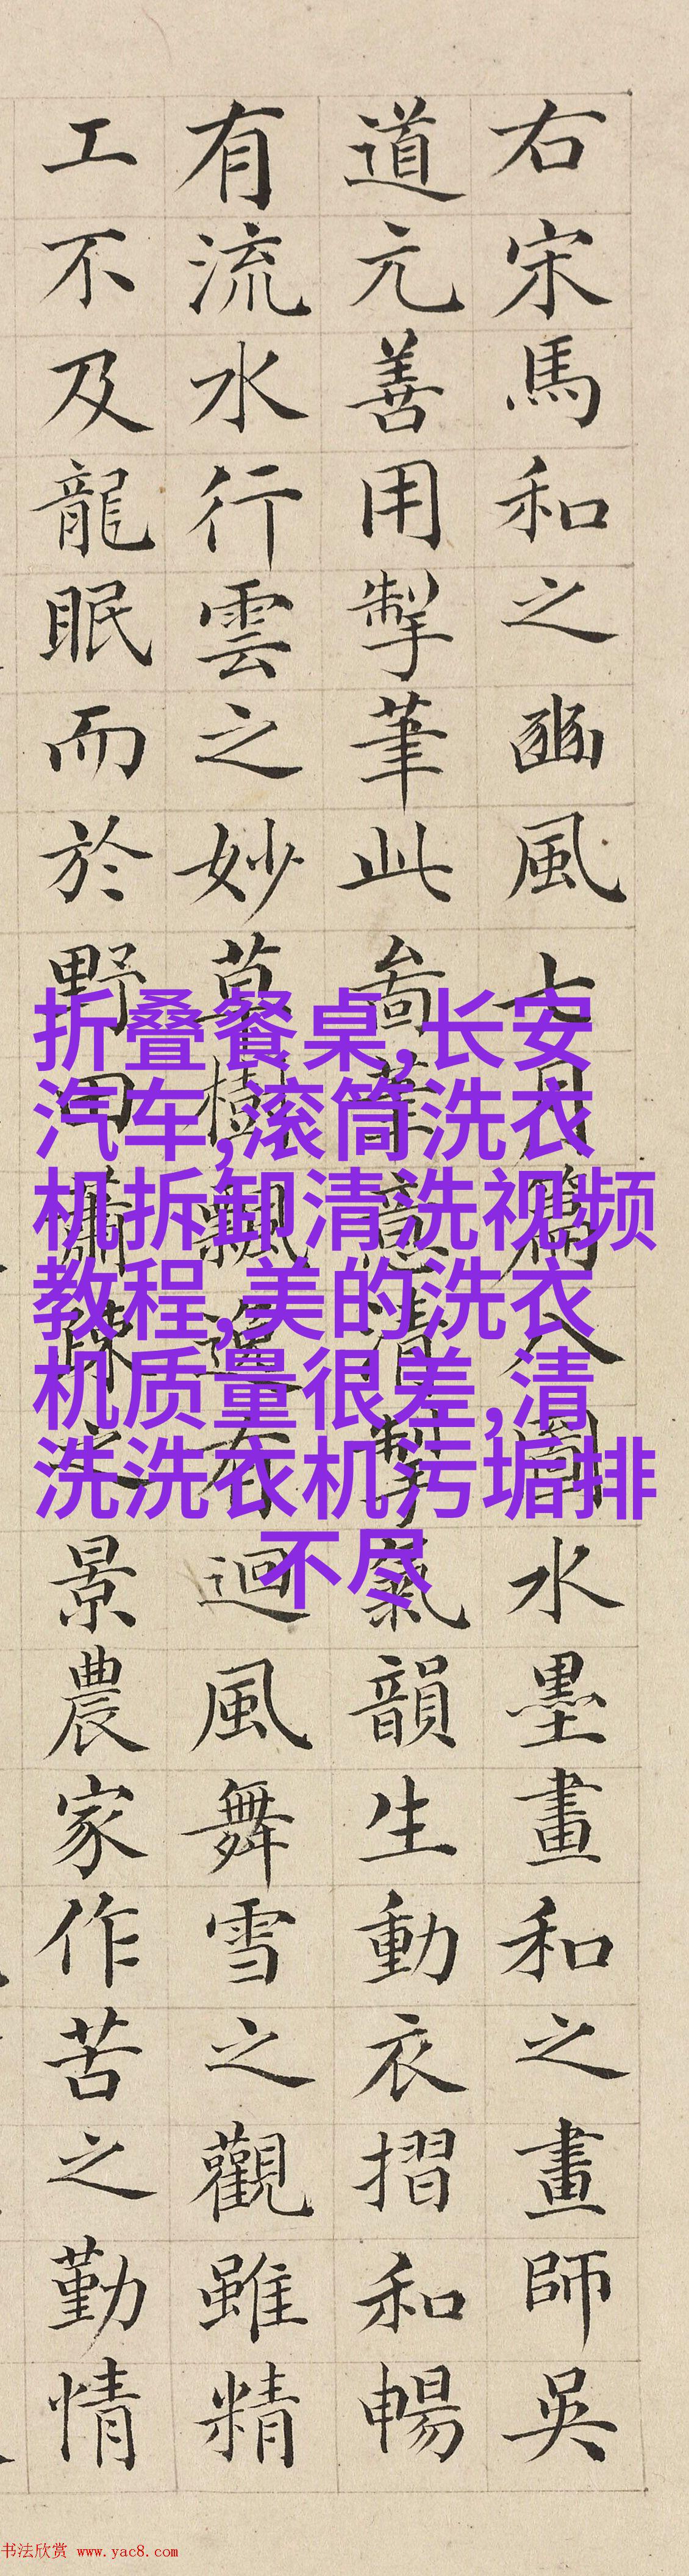 右宋馬和之豳風七月篇八圖水墨畫和之畫師吳
道元善用掣筆此啚筆意清掣氣韻生動衣摺和暢
有流水行雲之妙草樹飄有迴風舞雪之觀雖精
工不及龍眠而於野田蕭疎之景農家作苦之勤情
折叠餐桌,长安
汽车,滚筒洗衣
机拆卸清洗视频
教程,美的洗衣
机质量很差,清
洗洗衣机污垢排
不尽
书法欣赏 www.yac8.com